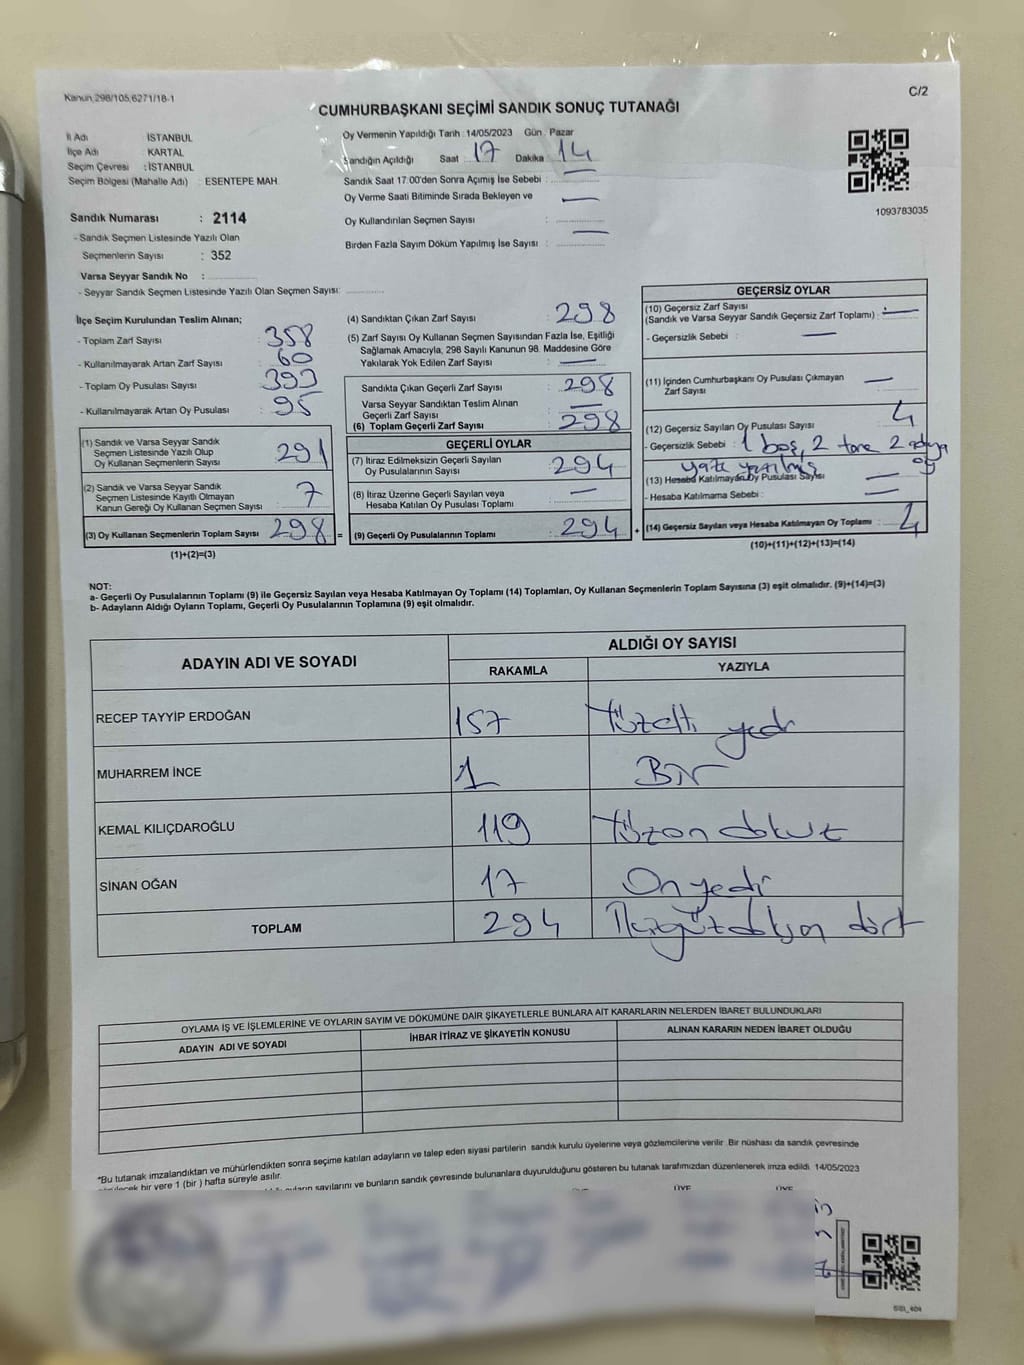 Kanun,298/105,6271/18-1
C/2
CUMHURBAŞKANI SEÇİMİ SANDIK SONUÇ TUTANAĞI
İl Adı : İSTANBUL
İlçe Adı : KARTAL
Seçim Çevresi : İSTANBUL
Seçim Bölgesi (Mahalle Adı) : ESENTEPE MAH.
Oy Vermenin Yapıldığı Tarih : 14/05/2023 Gün : Pazar
Sandığın Açıldığı Saat : 17 Dakika : 14
Sandık Saat 17:00'den Sonra Açımış İse Sebebi : —
Oy Verme Saati Bitiminde Sırada Bekleyen ve
Oy Kullandırılan Seçmen Sayısı : —
Birden Fazla Sayım Döküm Yapılmış İse Sayısı : —
1093783035
Sandık Numarası : 2114
- Sandık Seçmen Listesinde Yazılı Olan
Seçmenlerin Sayısı : 352
Varsa Seyyar Sandık No :
- Seyyar Sandık Seçmen Listesinde Yazılı Olan Seçmen Sayısı:
İlçe Seçim Kurulundan Teslim Alınan;
- Toplam Zarf Sayısı : 358
- Kullanılmayarak Artan Zarf Sayısı : 60
- Toplam Oy Pusulası Sayısı : 393
- Kullanılmayarak Artan Oy Pusulası : 95
(1) Sandık ve Varsa Seyyar Sandık
Seçmen Listesinde Yazılı Olup
Oy Kullanan Seçmenlerin Sayısı : 291
(2) Sandık ve Varsa Seyyar Sandık
Seçmen Listesinde Kayıtlı Olmayan
Kanun Gereği Oy Kullanan Seçmen Sayısı : 7
(3) Oy Kullanan Seçmenlerin Toplam Sayısı : 298 =
(1)+(2)=(3)
(4) Sandıktan Çıkan Zarf Sayısı : 298
(5) Zarf Sayısı Oy Kullanan Seçmen Sayısından Fazla İse, Eşitliği
Sağlamak Amacıyla, 298 Sayılı Kanunun 98. Maddesine Göre
Yakılarak Yok Edilen Zarf Sayısı : —
Sandıkta Çıkan Geçerli Zarf Sayısı : 298
Varsa Seyyar Sandıktan Teslim Alınan
Geçerli Zarf Sayısı : —
(6) Toplam Geçerli Zarf Sayısı : 298
GEÇERLİ OYLAR
(7) İtiraz Edilmeksizin Geçerli Sayılan
Oy Pusulalarının Sayısı : 294
(8) İtiraz Üzerine Geçerli Sayılan veya
Hesaba Katılan Oy Pusulası Toplamı : —
(9) Geçerli Oy Pusulalarının Toplamı : 294 +
GEÇERSİZ OYLAR
(10) Geçersiz Zarf Sayısı
(Sandık ve Varsa Seyyar Sandık Geçersiz Zarf Toplamı) : —
- Geçersizlik Sebebi : —
(11) İçinden Cumhurbaşkanı Oy Pusulası Çıkmayan
Zarf Sayısı : —
(12) Geçersiz Sayılan Oy Pusulası Sayısı : 4
- Geçersizlik Sebebi : 1 boş, 2 tane 2 adaya
oy
(13) Hesaba Katılmayan Oy Pusulası Sayısı : —
- Hesaba Katılmama Sebebi : —
(14) Geçersiz Sayılan veya Hesaba Katılmayan Oy Toplamı : 4
(10)+(11)+(12)+(13)=(14)
NOT:
a- Geçerli Oy Pusulalarının Toplamı (9) ile Geçersiz Sayılan veya Hesaba Katılmayan Oy Toplamı (14) Toplamları, Oy Kullanan Seçmenlerin Toplam Sayısına (3) eşit olmalıdır. (9)+(14)=(3)
b- Adayların Aldığı Oyların Toplamı, Geçerli Oy Pusulalarının Toplamına (9) eşit olmalıdır.
ADAYIN ADI VE SOYADI
ALDIĞI OY SAYISI
RAKAMLA YAZIYLA
RECEP TAYYİP ERDOĞAN 157 Yüzelli yedi
MUHARREM İNCE 1 Bir
KEMAL KILIÇDAROĞLU 119 Yüzon dokuz
SİNAN OĞAN 17 On yedi
TOPLAM 294 İkiyüzdoksan dört
OYLAMA İŞ VE İŞLEMLERİNE VE OYLARIN SAYIM VE DÖKÜMÜNE DAİR ŞİKAYETLERLE BUNLARA AİT KARARLARIN NELERDEN İBARET BULUNDUKLARI
ADAYIN ADI VE SOYADI İHBAR İTİRAZ VE ŞİKAYETİN KONUSU ALINAN KARARIN NEDEN İBARET OLDUĞU
*Bu tutanak imzalandıktan ve mühürlendikten sonra seçime katılan adayların ve talep eden siyasi partilerin sandık kurulu üyelerine veya gözlemcilerine verilir. Bir nüshası da sandık çevresinde
bir yere 1 (bir ) hafta süreyle asılır.
sayılarını ve bunların sandık çevresinde bulunanlara duyurulduğunu gösteren bu tutanak tarafımızdan düzenlenerek imza edildi. 14/05/2023
ÜYE ÜYE